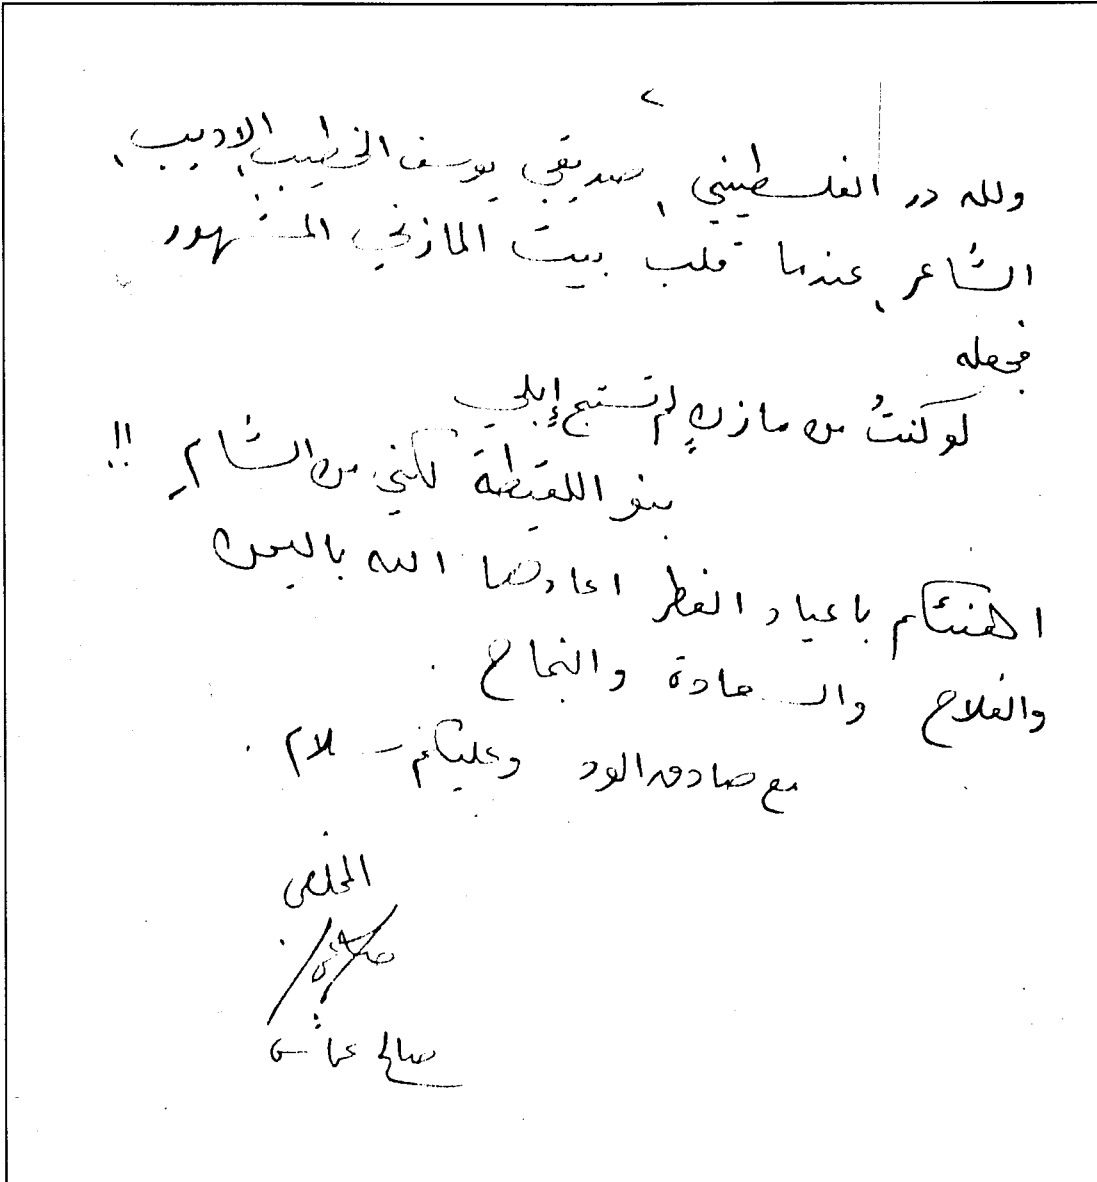 ٢
ولله در الفلسطيني، صديقي يوسف الخطيب، الاديب،
الشاعر، عندما قلب بيت المازني المشهور
فجعله
لو كنتُ من مازنٍ لم تستبح إبلي
بنو اللقيطة لكني من الشامِ !!
اهنئكم باعياد الفطر اعادها الله باليمن
والفلاح والسعادة والنجاح .
مع صادق الود وعليكم سلام .
المخلص
صالح عماش